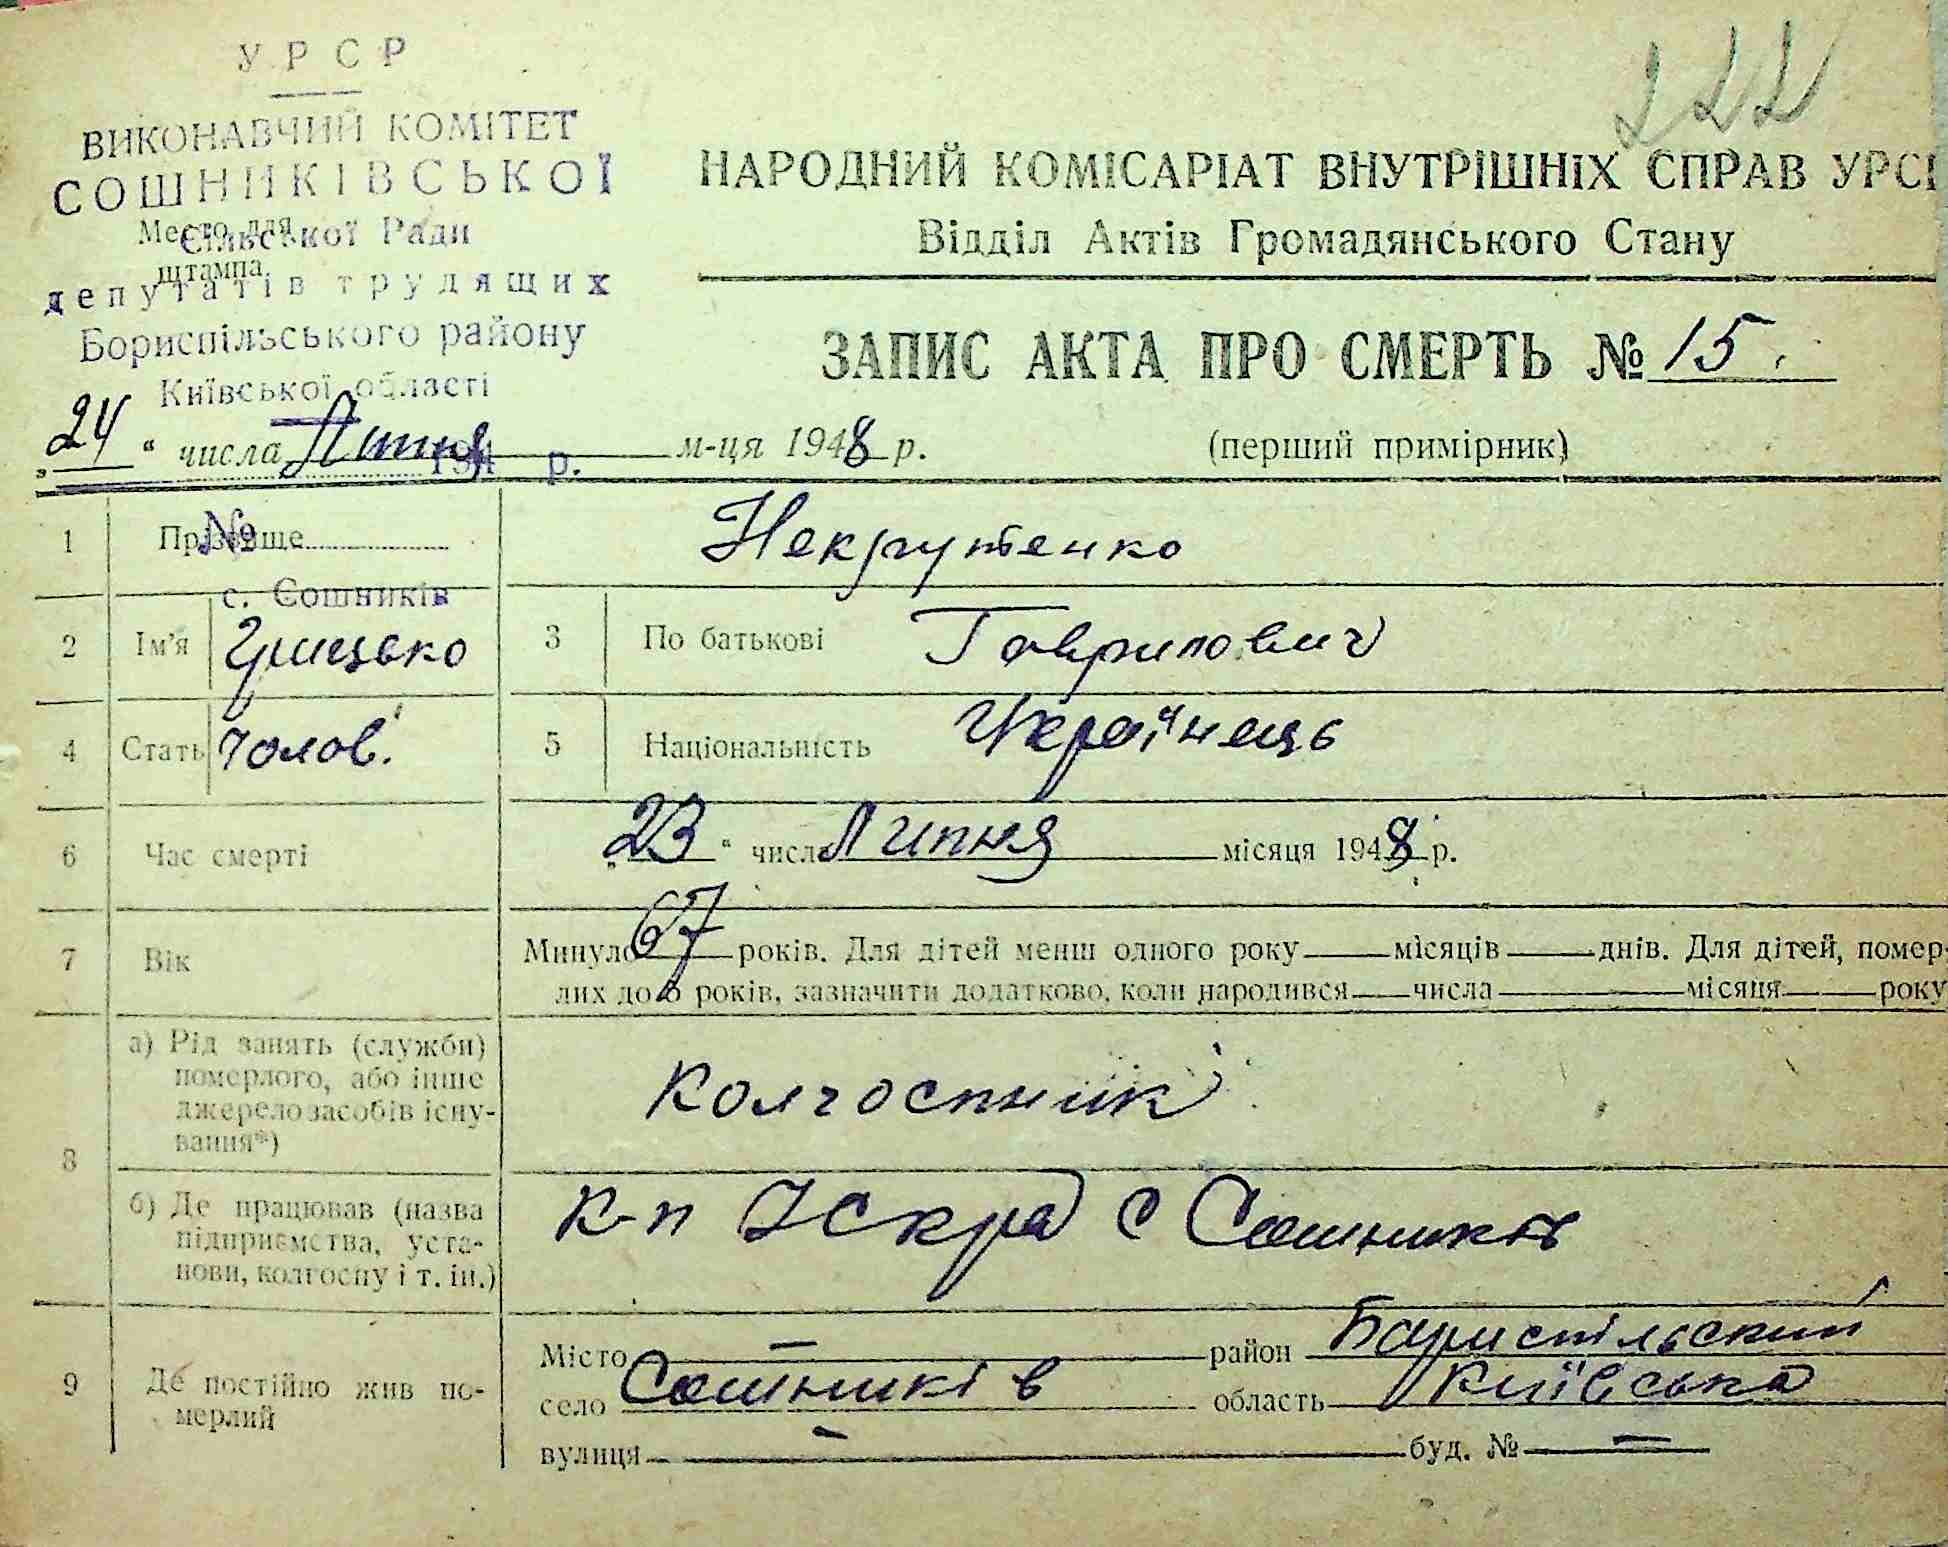 222
У Р С Р
ВИКОНАВЧИЙ КОМІТЕТ
СОШНИКІВСЬКОЇ
Место для
Сільської Ради
штампа
депутатів трудящих
Бориспільського району
Київської області
194 р.
№
с. Сошників
НАРОДНИЙ КОМІСАРІАТ ВНУТРІШНІХ СПРАВ УРСР
Відділ Актів Громадянського Стану
ЗАПИС АКТА ПРО СМЕРТЬ № 15.
„24“ числа Липня м-ця 1948 р. (перший примірник)
1 Прізвище Некрутенко
2 Ім'я Грицько 3 По батькові Гаврилович
4 Стать чолов. 5 Національність Українець
6 Час смерті „23“ числа Липня місяця 1948 р.
7 Вік Минуло 67 років. Для дітей менш одного року — місяців — днів. Для дітей, помер-
лих до 6 років, зазначити додатково, коли народився — числа — місяця — року
8 а) Рід занять (служби)
померлого, або інше
джерело засобів існу-
вання*)
Колгоспник
б) Де працював (назва
підприємства, уста-
нови, колгоспу і т. ін.)
К-п Іскра с Сошників
9 Де постійно жив по-
мерлий
Місто — район Бориспільский
село Сошників область Київська
вулиця — буд. № —